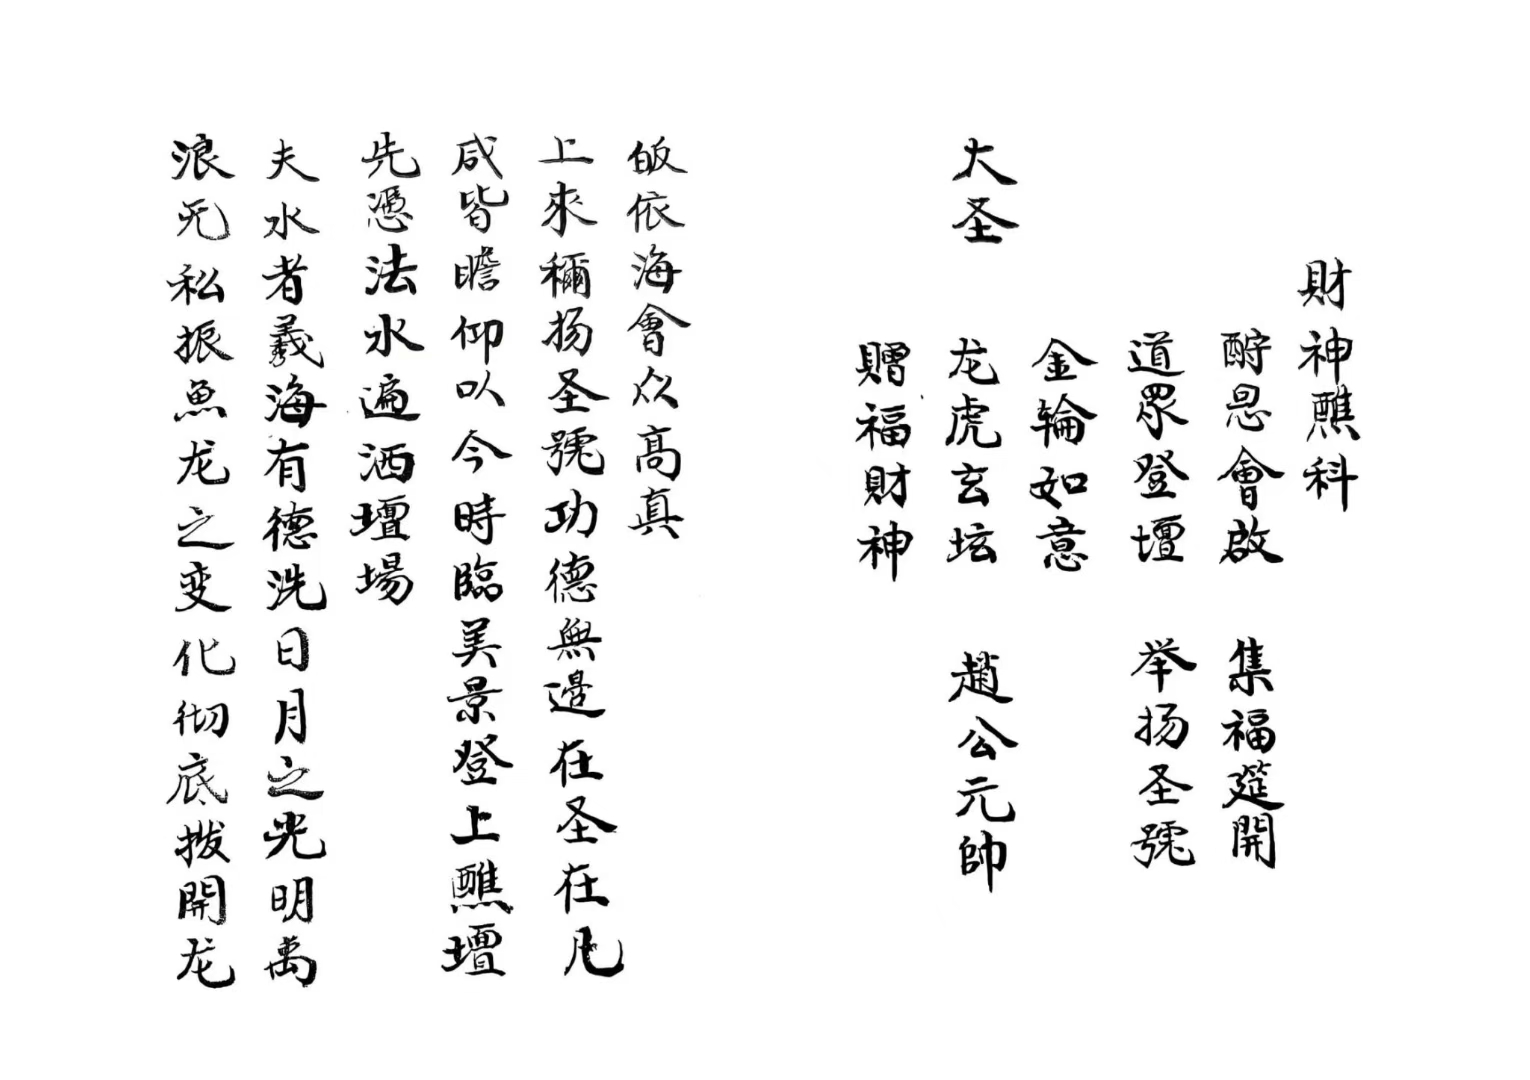 財神醮科
酧恩會啟 集福筵開
道眾登壇 举扬圣號
金輪如意
大圣 龙虎玄坛 趙公元帥
贈福財神
皈依海會众高真
上來稱扬圣號功德無邊在圣在凡
咸皆瞻仰以今時臨美景登上醮壇
先憑法水遍洒壇場
夫水者羲海有德洗日月之光明禹
浪无私振魚龙之变化彻底拨開龙